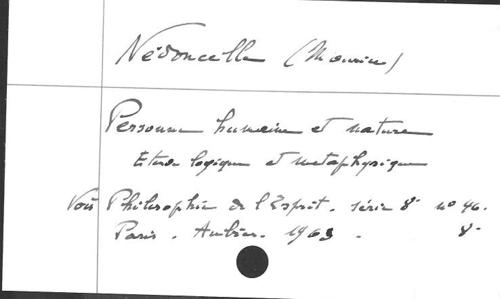 Nédoncelle (Maurice)
Personne humaine et nature
Etude logique et métaphysique
Voir Philosophie de l'Esprit. série 8° nº 46.
Paris. Aubier. 1963. 8°